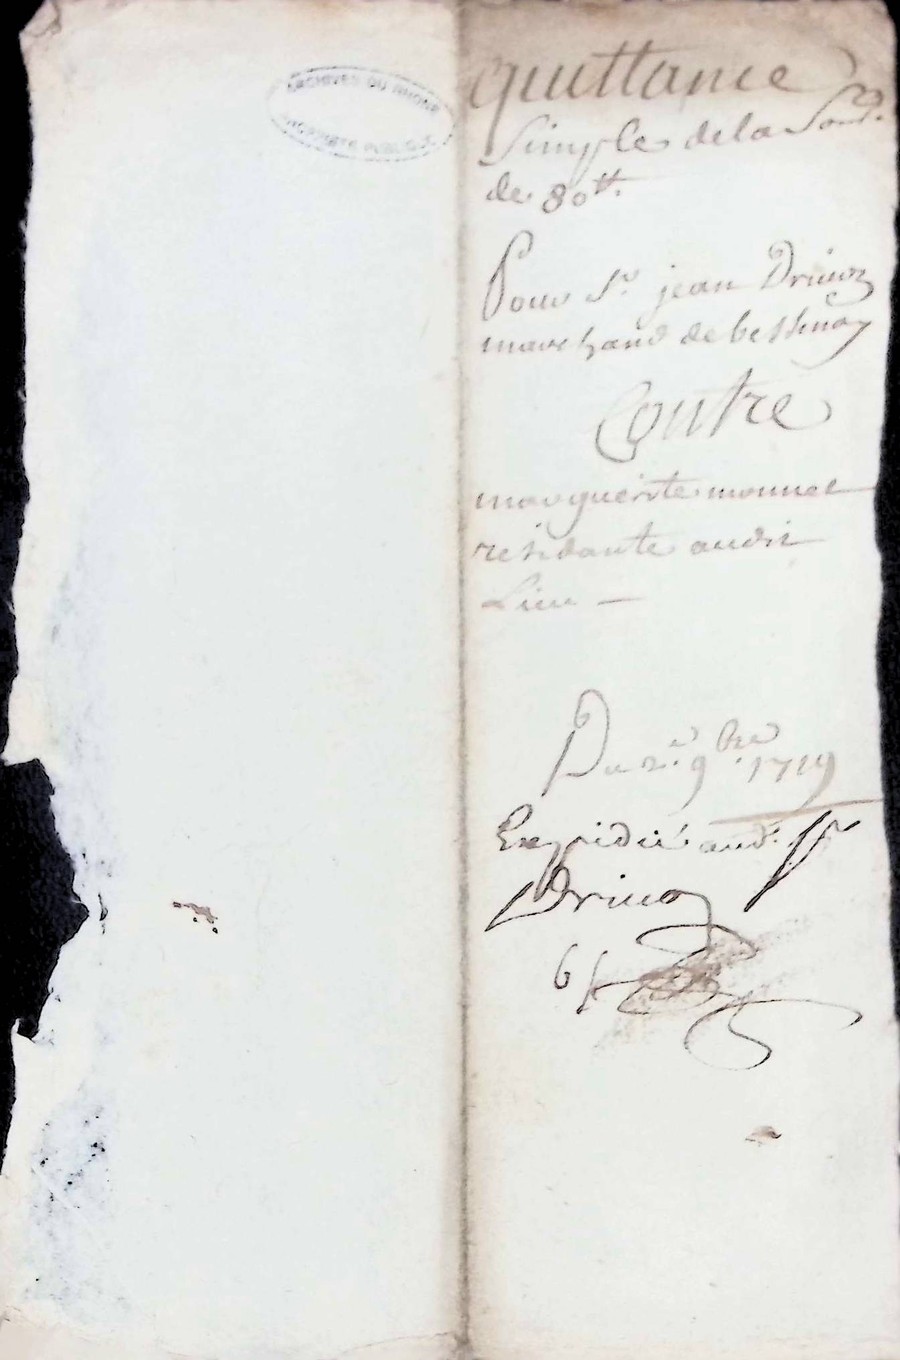 ARCHIVES DU RHONE
PROPRIETE PUBLIQUE
quittance
Simple de la Som.
de 80tt.
Pour Sr. jean Drivoz
marchand de bessenay
Contre
marguerite monnet
residante audit
Lieu —
Du 2e. 9bre. 1719
Expédié aud. Sr
Drivoz
6 s